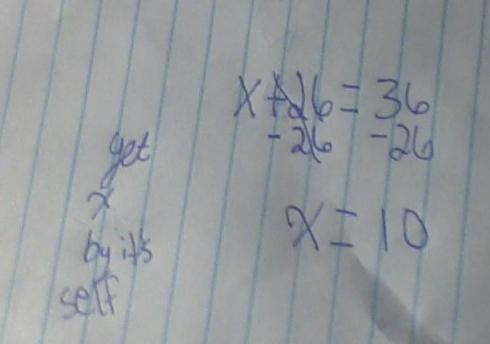 x + 26 = 36
- 26 - 26
x = 10
get
x
by it's
self